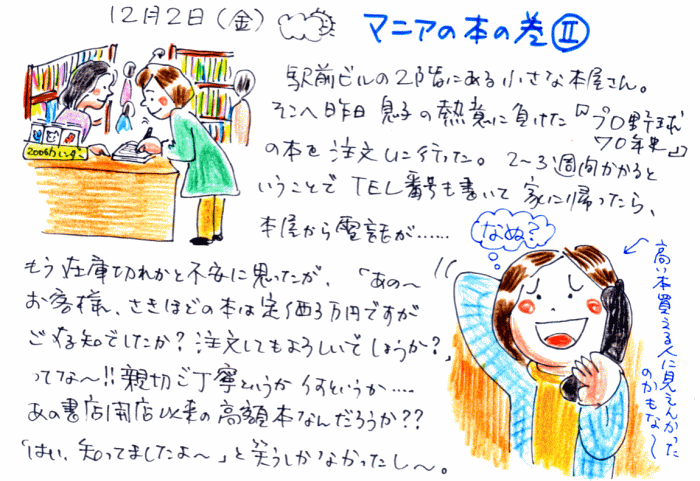 12月2日(金)
マニアの本の巻Ⅱ
駅前ビルの2階にある小さな本屋さん。
そこへ昨日息子の熱意に負けた『プロ野球
70年史』
の本を注文しに行った。2〜3週間かかると
いうことでTEL番号も書いて家に帰ったら、
本屋から電話が……
2006カレンダー
なぬ?
もう在庫切れかと不安に思ったが、「あの〜
お客様、さきほどの本は定価3万円ですが
ご存知でしたか?注文してもよろしいでしょうか?」
ってな〜!!親切ご丁寧というか何というか……
あの書店開店以来の高額本なんだろうか??
「はい、知ってましたよ〜」と笑うしかなかったし〜。
高い本買える人に見えんかった
のかもな〜